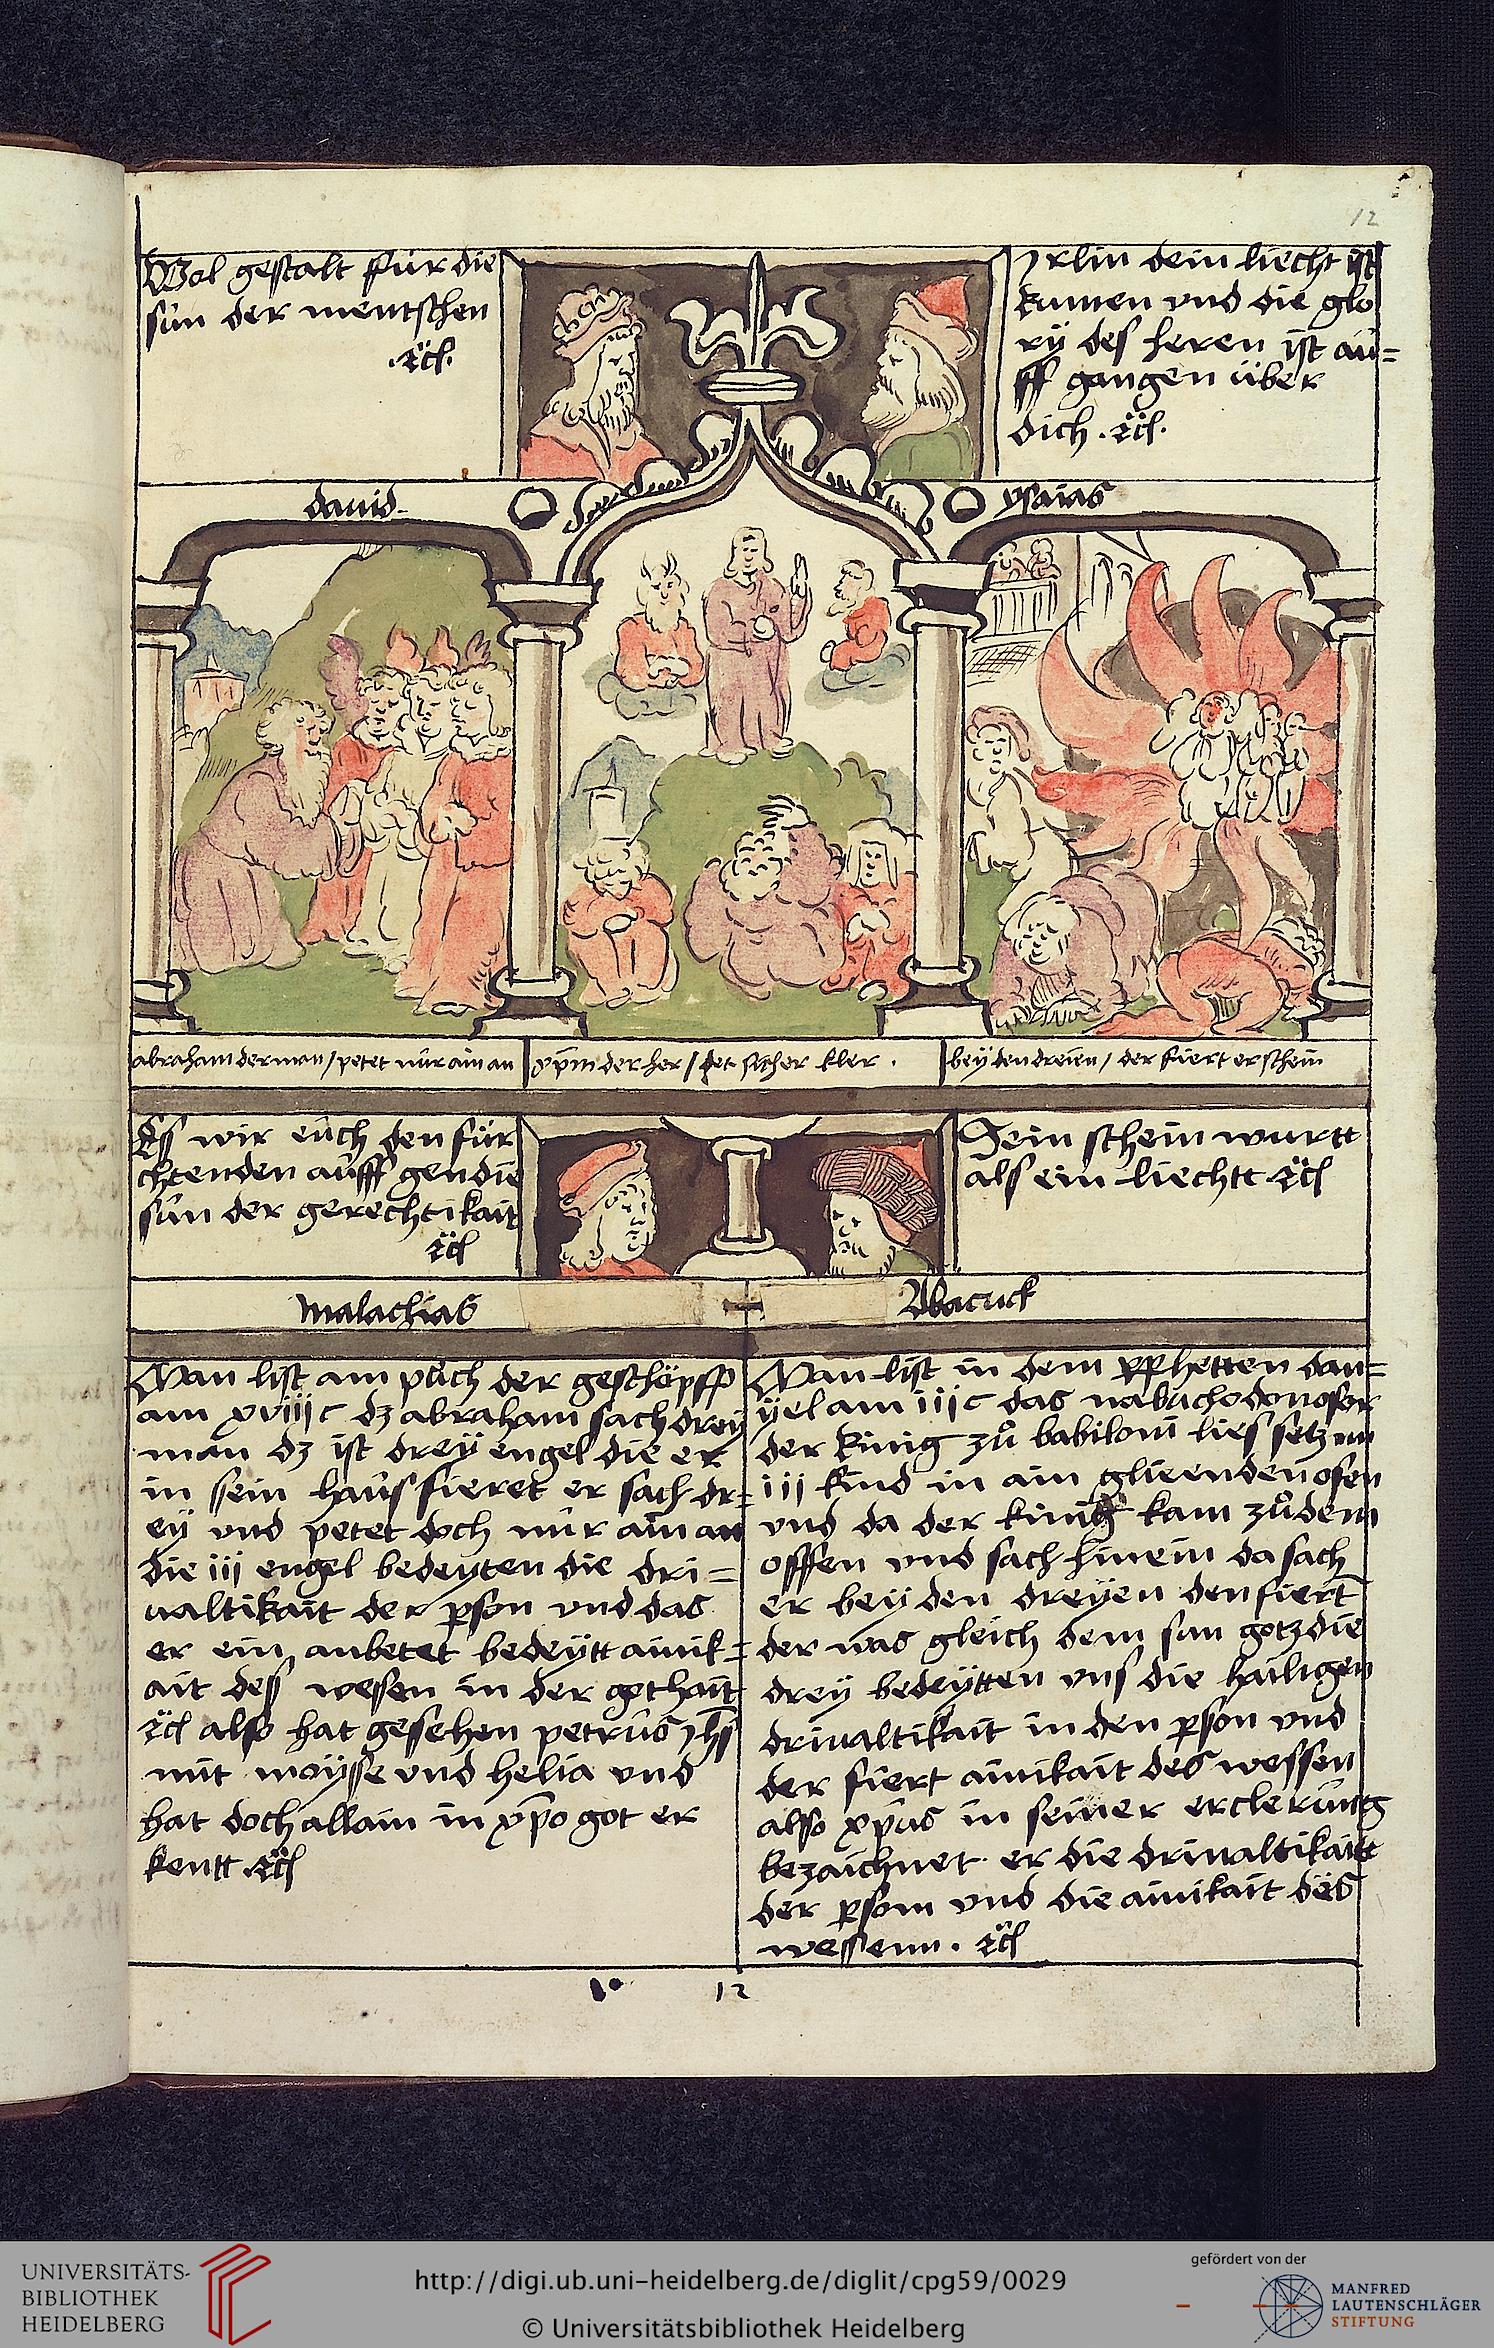 12
Wol gestalt für die
sün der mentschen
.rc̈.
Jrlin dein liecht ist
kumen vnd die glo
ry des heren ist au=
ff gangen über
dich . rc̈.
dauid.
ysaias
abraham der man / petet nür ain an
xp̄m der her / het sicher kler .
bey den dreien / der fiert erschein
Es wir eüch den für
chtenden aüff gen die
sün der gerechtikait
rc̈
Sein schein wurtt
als ein liechtt rc̈
Malachias
Abacuck
Man list am püch der geschöpff
am xviijc dz abraham sach drey
man dz ist drey engel die er
in sein haüs fieret er sach dr=
ey vnd petet doch nür ain an
die iij engel bedeyten die dri=
ualtikait der pson vnd das
er ein anbetet bedeytt ainik=
ait dess wessen in der gothait
rc̈ also hat gesehen petrüs jhs̄
mit moysse vnd helia vnd
hat doch allain in xp̄o got er
kentt . rc̈
Man list in dem pphetten dan=
ÿel am iijc das nabuchodonosor
der king zů babiloni lies setzen
iij kind in ain glieenden ofen
vnd da der kinig kam zů dem
offen vnd sach hinein da sach
er bey den dreyen den fiert
der was gleich dem sun gotz die
drey bedeytten vns die hailigen
driualtikait in den pson vnd
der fiert ainikait des wessen
also xp̄us in seiner erclerung
bezaichnet er die driualtikaitt
der psom vnd die ainikait dës
wessenn . rc̈
1• 12
UNIVERSITÄTS-
BIBLIOTHEK
HEIDELBERG
http://digi.ub.uni-heidelberg.de/diglit/cpg59/0029
© Universitätsbibliothek Heidelberg
gefördert von der
MANFRED
LAUTENSCHLÄGER
STIFTUNG